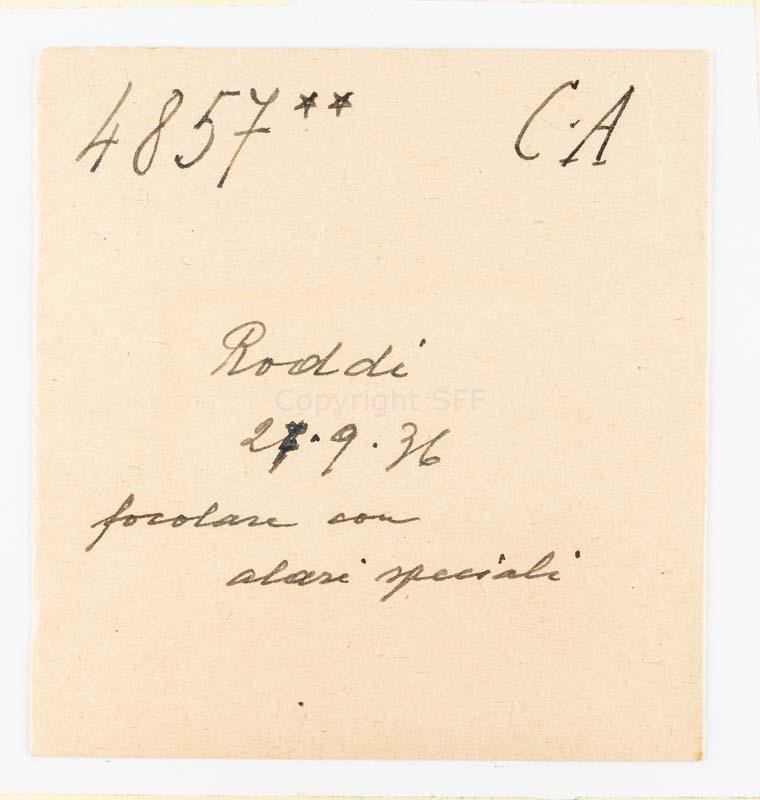 4857** C.A
Roddi
Copyright SFF
27.9.36
focolare con
alari speciali